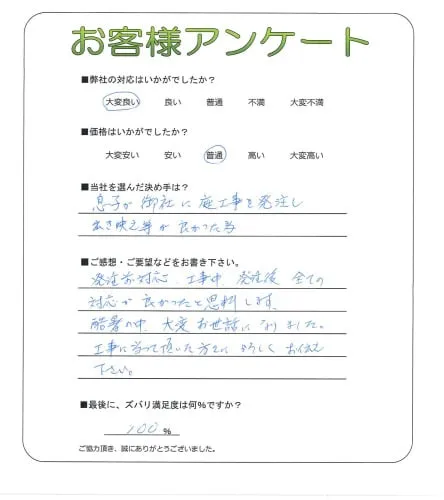 お客様アンケート
■弊社の対応はいかがでしたか?
大変良い 良い 普通 不満 大変不満
■価格はいかがでしたか?
大変安い 安い 普通 高い 大変高い
■当社を選んだ決め手は?
息子が御社に庭工事を発注し
出き映え等が良かった為
■ご感想・ご要望などをお書き下さい。
発注前対応、工事中、発注後 全ての
対応が良かったと思料します。
酷暑の中、大変お世話になりました。
工事に当って頂いた方々によろしくお伝え
下さい。
■最後に、ズバリ満足度は何%ですか?
100 %
ご協力頂き、誠にありがとうございました。